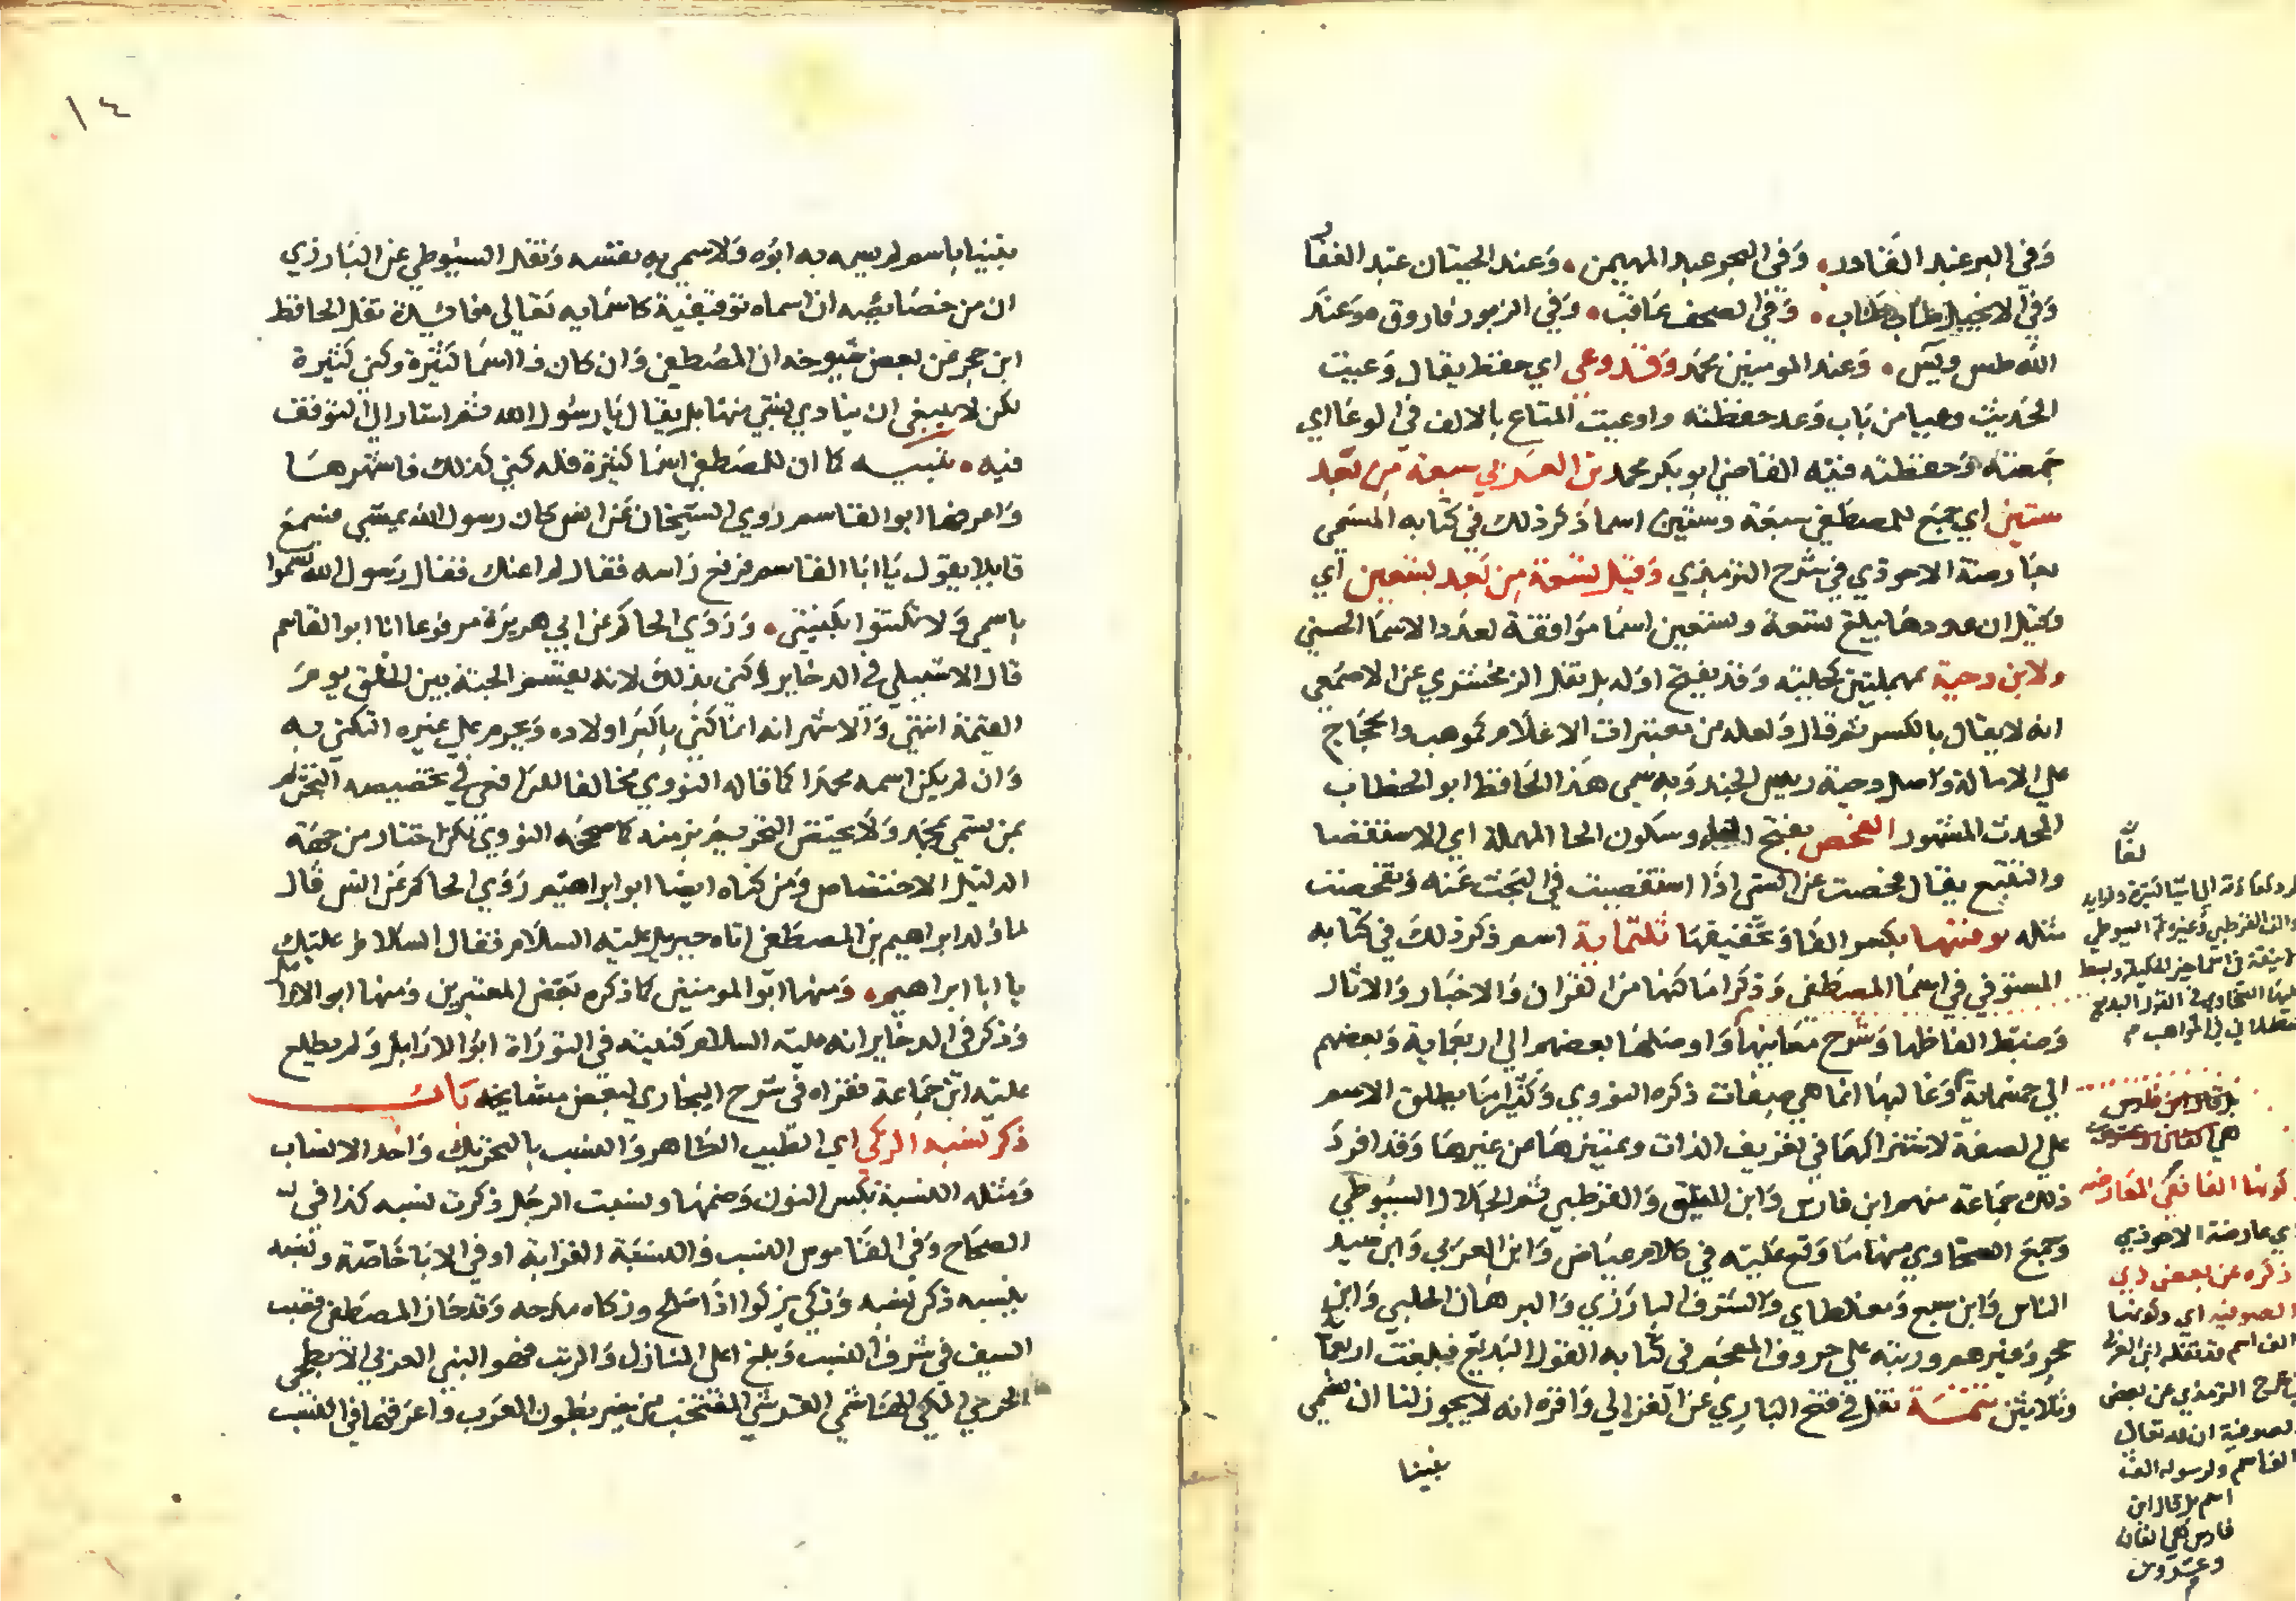 وفي البر عبد القادر وفي البحر عبد المهيمن وعند الحيتان عبد الغفار
وفي الانجيل طاب طاب وفي الصحف عاقب وفي الزبور فاروق وعند
الله طس ويس وعند المومنين محمد وقد وعي اي حفظ يقال وعيت
الحديث وعيا من باب وعد حفظته واوعيت المتاع بالالف في الوعا اي
جمعته وحفظته فيه القاضي ابو بكر محمد بن العربي سبعة من بعد
ستين اي جمع للمصطفي سبعة وستين اسما ذكر ذلك في كتابه المسمي
بعارضة الاحوذي في شرح الترمذي وقيل تسعة من بعد تسعين اي
وقيل ان عدودها يبلغ تسعة وتسعين اسما موافقة لعدد الاسما الحسني
ولابن دحية بمهملتين تحتية وقد يفتح اوله بل نقل الزمخشري عن الاصمعي
انه لا يقال بالكسر ثم قال ولعله من تغييرات الاعلام كموهب والحجاج
علي الامالة واصل دحية رييس الجند وبه سمي هذا الحافظ ابو الخطاب
المحدث المشهور الفحص بفتح وسكون الحا المهملة اي الاستقصا
والتتبع يقال فحصت عن الشي اذا استقصيت في البحث عنه وتفحصت
مثله يوفيها بكسر الفا وتخفيفها ثلثماية اسم ذكر ذلك في كتابه
المستوفي في اسما المصطفي وذكر اماكنها من القران والاخبار والاثار
وضبط الفاظها وشرح معانيها واوصلها بعضهم الي اربعماية وبعضهم
الي خمسماية وغالبها انما هي صفات ذكره النووي وكثيرا ما يطلق الاسم
علي الصفة لاشتراكهما في تعريف الذات وتمييزها من غيرها وقد افرد
ذلك جماعة منهم ابن فارس وابن الملقن والقرطبي ثم الجلال السيوطي
وجمع السخاوي منها ما وقع عليه في كلام عياض وابن العربي وابن سيد
الناس وابن سبع ومغلطاي والشرف البارزي والبرهان الحلبي وابن
حجر وغيرهم ورتبه علي حروف المعجم في كتابه القول البديع فبلغت اربعماية
وثلاثين تتمة نقل في فتح الباري عن الغزالي واقره انه لا يجوز لنا ان نسمي
نبينا
بل قال ابن فارس
هي الفان وعشرون
وكونها الفا في العارضه
اي عارضة الاحوذي
ذكره عن بعض ذي
الصوفيه اي وكونها
الف اسم قد نقله ابن العربي
في شرح الترمذي عن بعض
الصوفية ان لله تعالي
الف اسم ولرسوله الف
اسم بل قال ابن
فارس هي الفان
وعشرون
١٤
نبينا باسم لم يسمه به ابوه ولا سمي به نفسه ونقل السيوطي عن البارزي
ان من خصايصه ان اسماه توقيفية كاسمايه تعالي فايدة نقل الحافظ
ابن حجر عن بعض شيوخه ان المصطفي وان كان ذا اسما كثيرة وكني كثيرة
لكن لا ينبغي ان ينادي بشي منها بل يقال يا رسول الله ثم اشار الي التوقف
فيه تنبيه كما ان للمصطفي اسما كثيرة فله كني كذلك فاشهرها
واعرفها ابو القاسم روي الشيخان عن انس كان رسول الله يمشي فسمع
قايلا يقول يا ابا القاسم فرفع راسه فقال لم اعنك فقال رسول الله تسموا
باسمي ولا تكتنوا بكنيتي وروي الحاكم عن ابي هريرة مرفوعا انا ابو القاسم
قال الاشبيلي في الدخاير وكني بذلك لانه يقسم الجنة بين الخلق يوم
القيمة انتهي والاشهر انه انما كني باكبر اولاده ويحرم علي غيره التكني به
وان لم يكن اسمه محمدا كما قاله النووي مخالفا للرافعي في تخصيصه التحريم
بمن يسمي بمحمد ولا يختص التحريم بزمنه كما صححه النووي لكن اختار من جهة
الدليل الاختصاص ومن كناه ايضا ابو ابراهيم روي الحاكم عن انس قال
لما ولد ابراهيم بن المصطفي اتاه جبريل عليه السلام فقال السلام عليك
يا ابا ابراهيم ومنها ابو المومنين كما ذكره بعض المعتبرين ومنها ابو الارامل
وذكر في الدخاير انه عليه السلام كنيته في التوراة ابو الارامل ولم يطلع
عليه ابن جماعة فعزاه في شرح البخاري لبعض مشايخه باب
ذكر نسبه الزكي اي الطيب الطاهر والنسب بالتحريك واحد الانساب
ومثله النسبة بكسر النون وضمها ونسبت الرجل ذكرت نسبه كذا في
الصحاح وفي القاموس النسب والنسبة القرابة او في الابا خاصة ونسبه
ينسبه ذكر نسبه وزكي يزكوا اذا صلح وزكاه مدحه وقد حاز المصطفي قصب
السيف في شرف النسب وبلغ اعلي المنازل والرتب فهو النبي العربي الابطحي
الحرمي المكي الهاشمي القرشي المنتخب من خير بطون العرب واعرقها في النسب